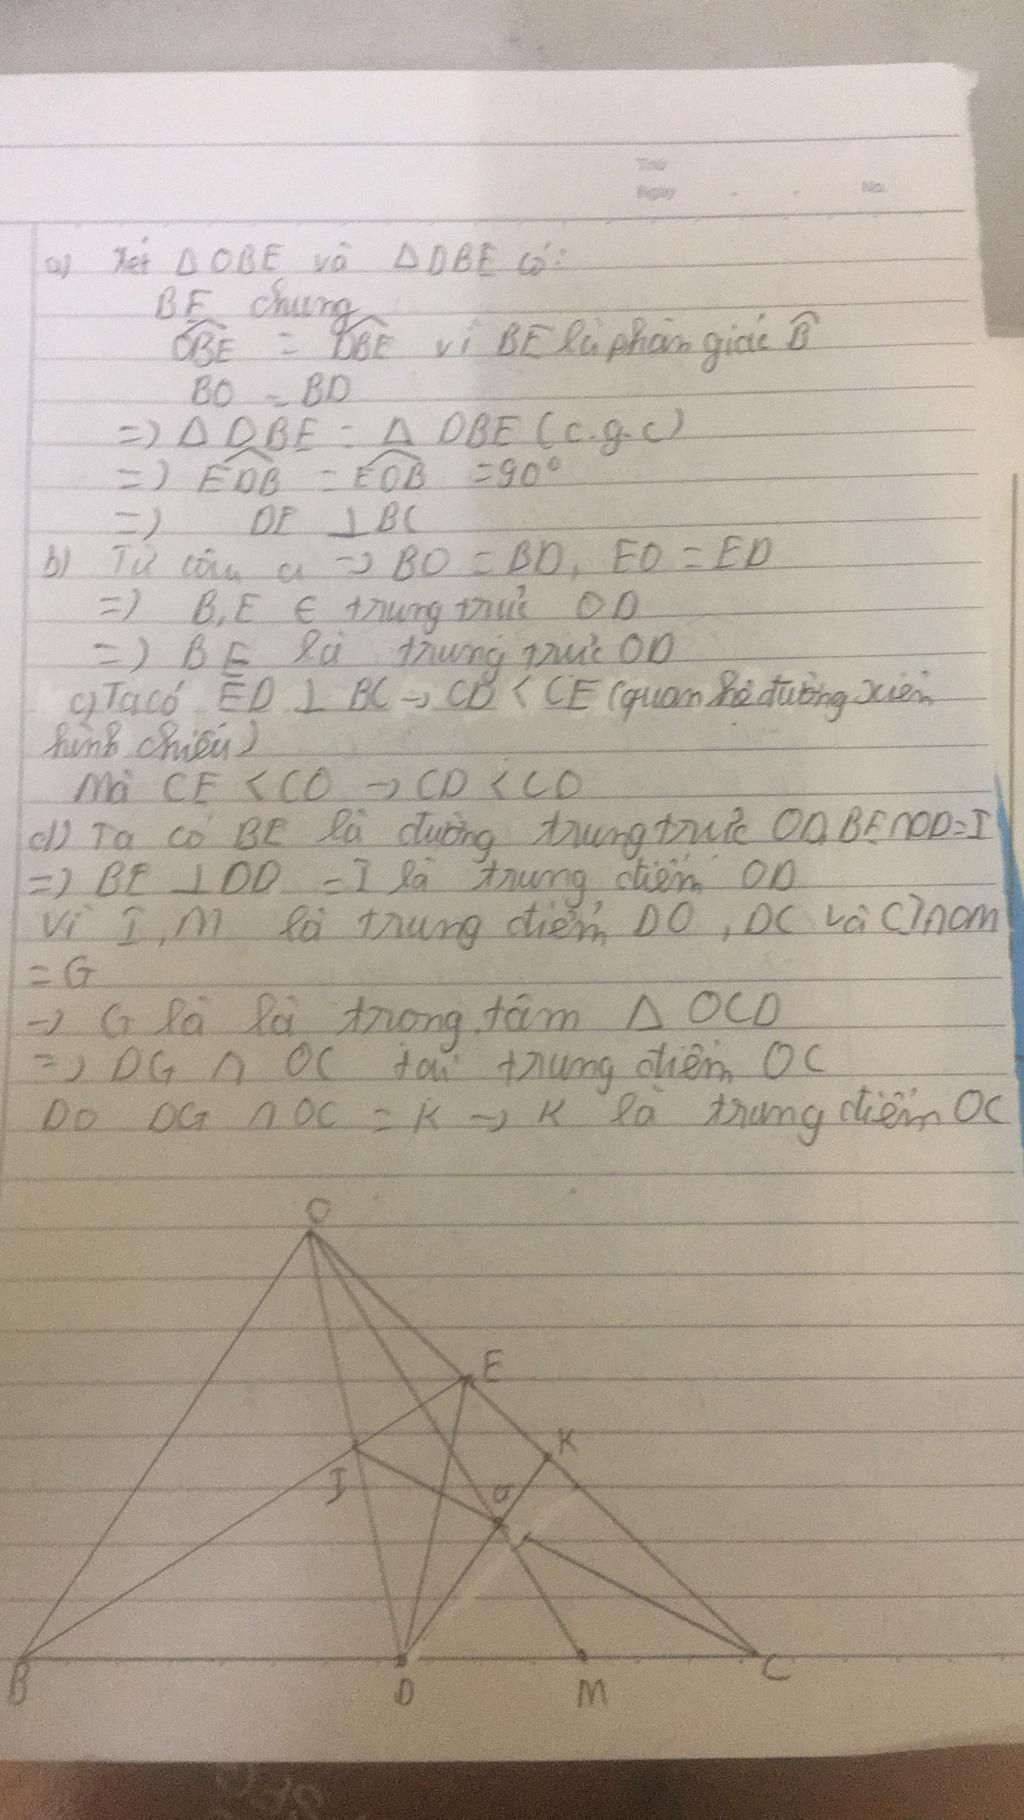 Thứ
Ngày - - No.
a) Xét Δ OBE và Δ DBE có:
BE chung
OBE = DBE vì BE là phân giác B
BO = BD
=) Δ OBE = Δ DBE (c.g.c)
=) EDB = EOB = 90°
=) DE ⊥ BC
b) Từ câu a → BO = BD, EO = ED
=) B, E ∈ trung trực OD
=) BE là trung trực OD
c) Ta có ED ⊥ BC → CD < CE (quan hệ đường xiên
hình chiếu)
Mà CE < CO → CD < CO
d) Ta có BE là đường trung trực OD, BE ∩ OD = I
=) BE ⊥ OD = I là trung điểm OD
Vì I, M là trung điểm DO, DC và CI ∩ OM
= G
→ G là là trọng tâm Δ OCD
=) DG ∩ OC tại trung điểm OC
Do DG ∩ OC = K → K là trung điểm OC
O
E
K
I
G
B
D
M
C